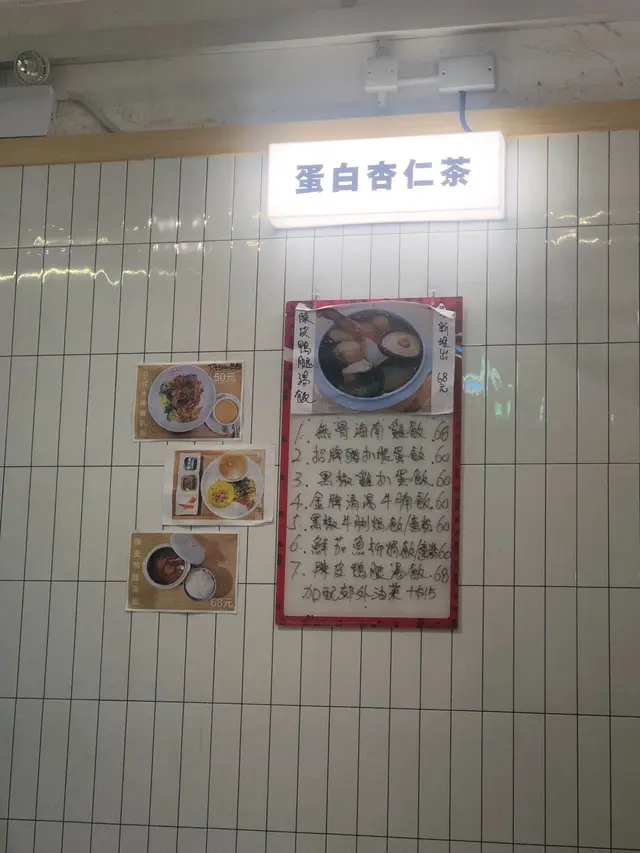 蛋白杏仁茶
陳皮鴨腿湯飯
新推出 68元
50元
68元
1. 無骨海南雞飯 .68
2. 招牌豬扒腿蛋飯 .60
3. 黑椒雞扒蛋飯 .60
4. 金牌清湯牛腩飯 .60
5. 黑椒牛脷焗飯/意粉 60
6. 鮮茄魚柳焗飯/意粉 60
7. 陳皮鴨腿湯飯 .68
加配郊外油菜 +$15